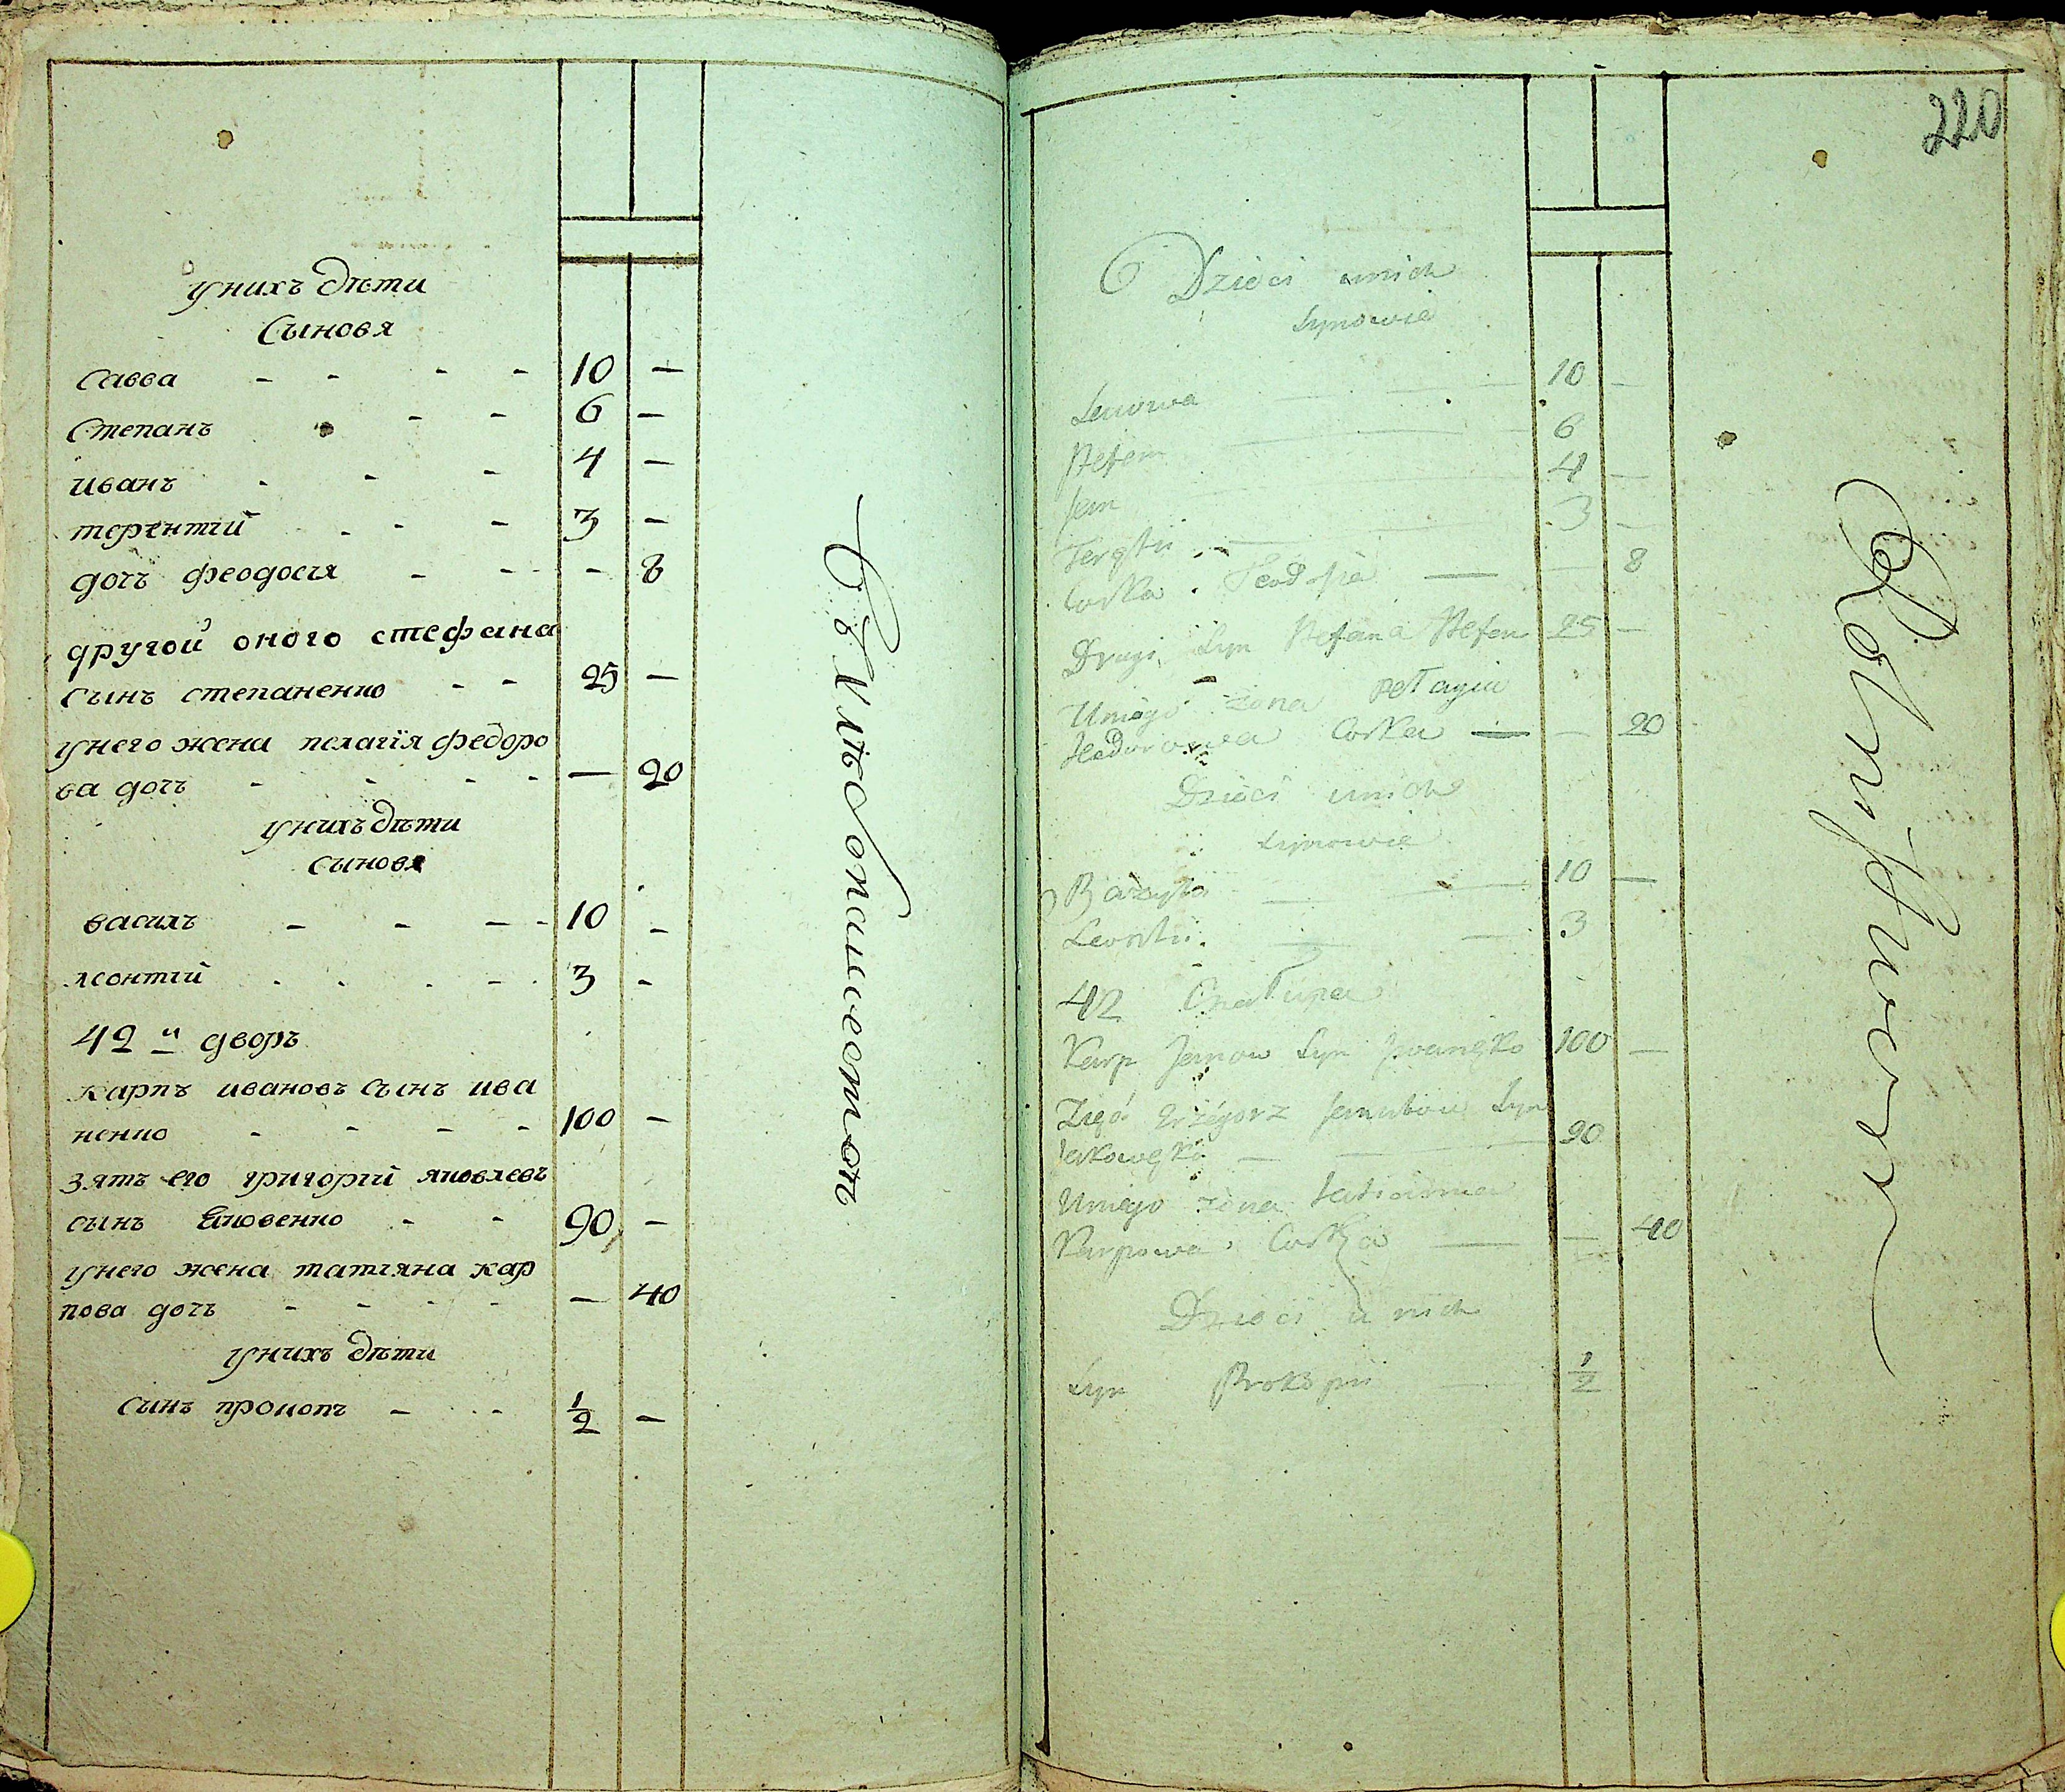 у нихъ дѣти
Сыновя
Савва - - - - 10 -
Степанъ - - 6 -
иванъ - - - 4 -
терентий - - - 3 -
дочь феодосия - - - - 8
другой оного стефана
Сынъ степаненко - - 25 -
у него жена пелагия федоро
ва дочь - - - - - 20
у нихъ дѣти
сыновя
василь - - - - 10 -
леонтий - - - - 3 -
42 й дворъ
карпъ ивановъ сынъ ива
ненко - - - - 100 -
зять его григорий яковлевъ
сынъ яковенко - - 90 -
у него жена татияна кар
пова дочь - - - - - 40
у нихъ дѣти
Синъ прокопъ - - - 1/2 -
в Хлѣбопашествѣ
220
Dzieci unich
Synowie
10 -
6
Stefan 4 -
Jan 3 -
Corka Teodosia - - 8
Drugi Syn Stefana Stefen 25 -
Uniego zona Pelagia
Corka - - 20
Dzieci unich
Synowie
Bazyli - - 10 -
Leontii - - 3
42 Chałupa
Karp Janow Syn Iwanęko 100 -
Zięć Grzegorz Syn
- - 90
Uniego zona Tatianna
Karpowa Corka - - 40
Dzieci u nich
Syn Prokopii - 1/2